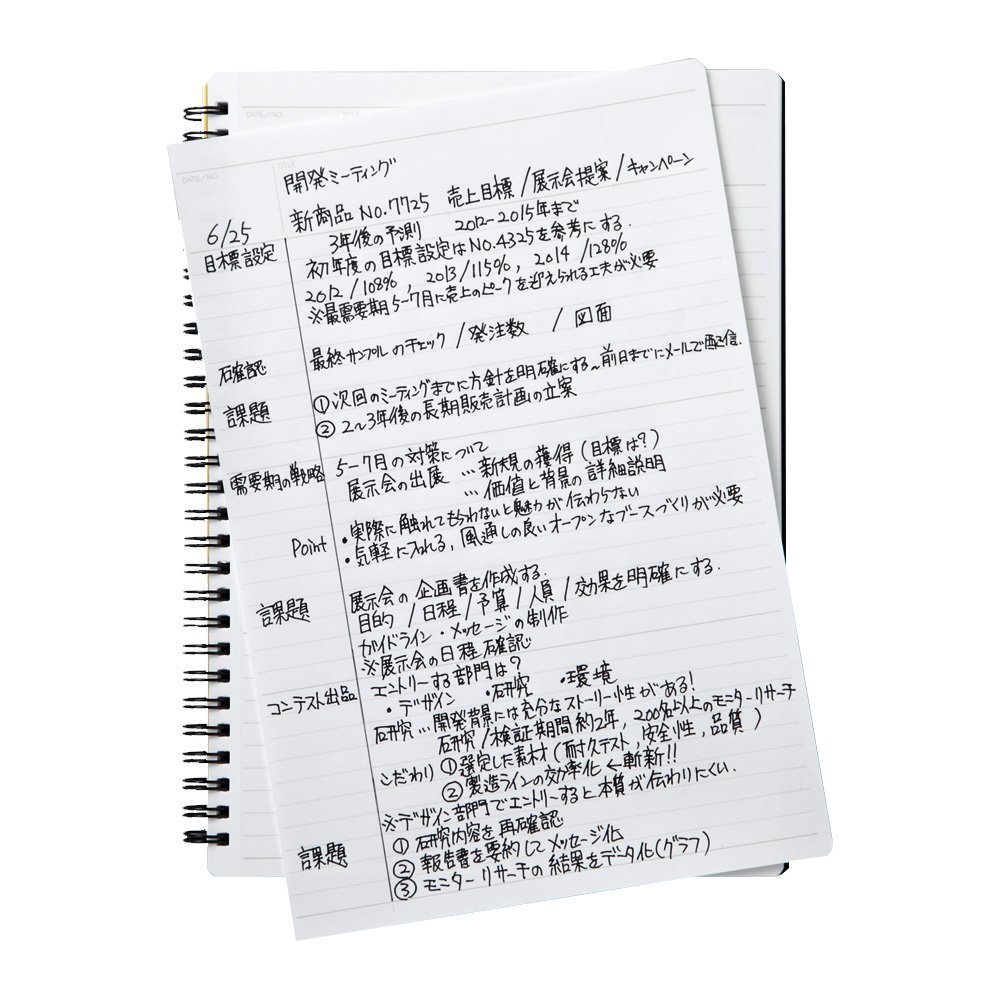 DATE/NO.
DATE/NO. TITLE
開発ミーティング
6/25 新商品 No.7725 売上目標/展示会提案/キャンペーン
目標設定 3年後の予測 2012-2015年まで
初年度の目標設定はNo.4325を参考にする。
2012/108%, 2013/115%, 2014/128%
※最需要期5-7月に売上のピークを迎えられる工夫が必要
確認 最終サンプルのチェック/発注数 /図面
課題 ①次回のミーティングまでに方針を明確にする~前日までにメールで配信.
②2~3年後の長期販売計画の立案
需要期の戦略 5-7月の対策について
展示会の出展 …新規の獲得(目標は?)
…価値と背景の詳細説明
Point ・実際に触れてもらわないと魅力が伝わらない
・気軽に入れる, 風通しの良いオープンなブースづくりが必要
課題 展示会の企画書を作成する.
目的/日程/予算/人員/効果を明確にする.
ガイドライン・メッセージの制作
※展示会の日程確認
コンテスト出品 エントリーする部門は?
・デザイン ・研究 ・環境
研究…開発背景には充分なストーリー性がある!
研究/検証期間約2年, 200名以上のモニターリサーチ
こだわり ①選定した素材(耐久テスト, 安全性, 品質)
②製造ラインの効率化←斬新!!
※デザイン部門でエントリーすると本質が伝わりにくい.
課題 ①研究内容を再確認
②報告書を要約してメッセージ化
③モニターリサーチの結果をデータ化(グラフ)